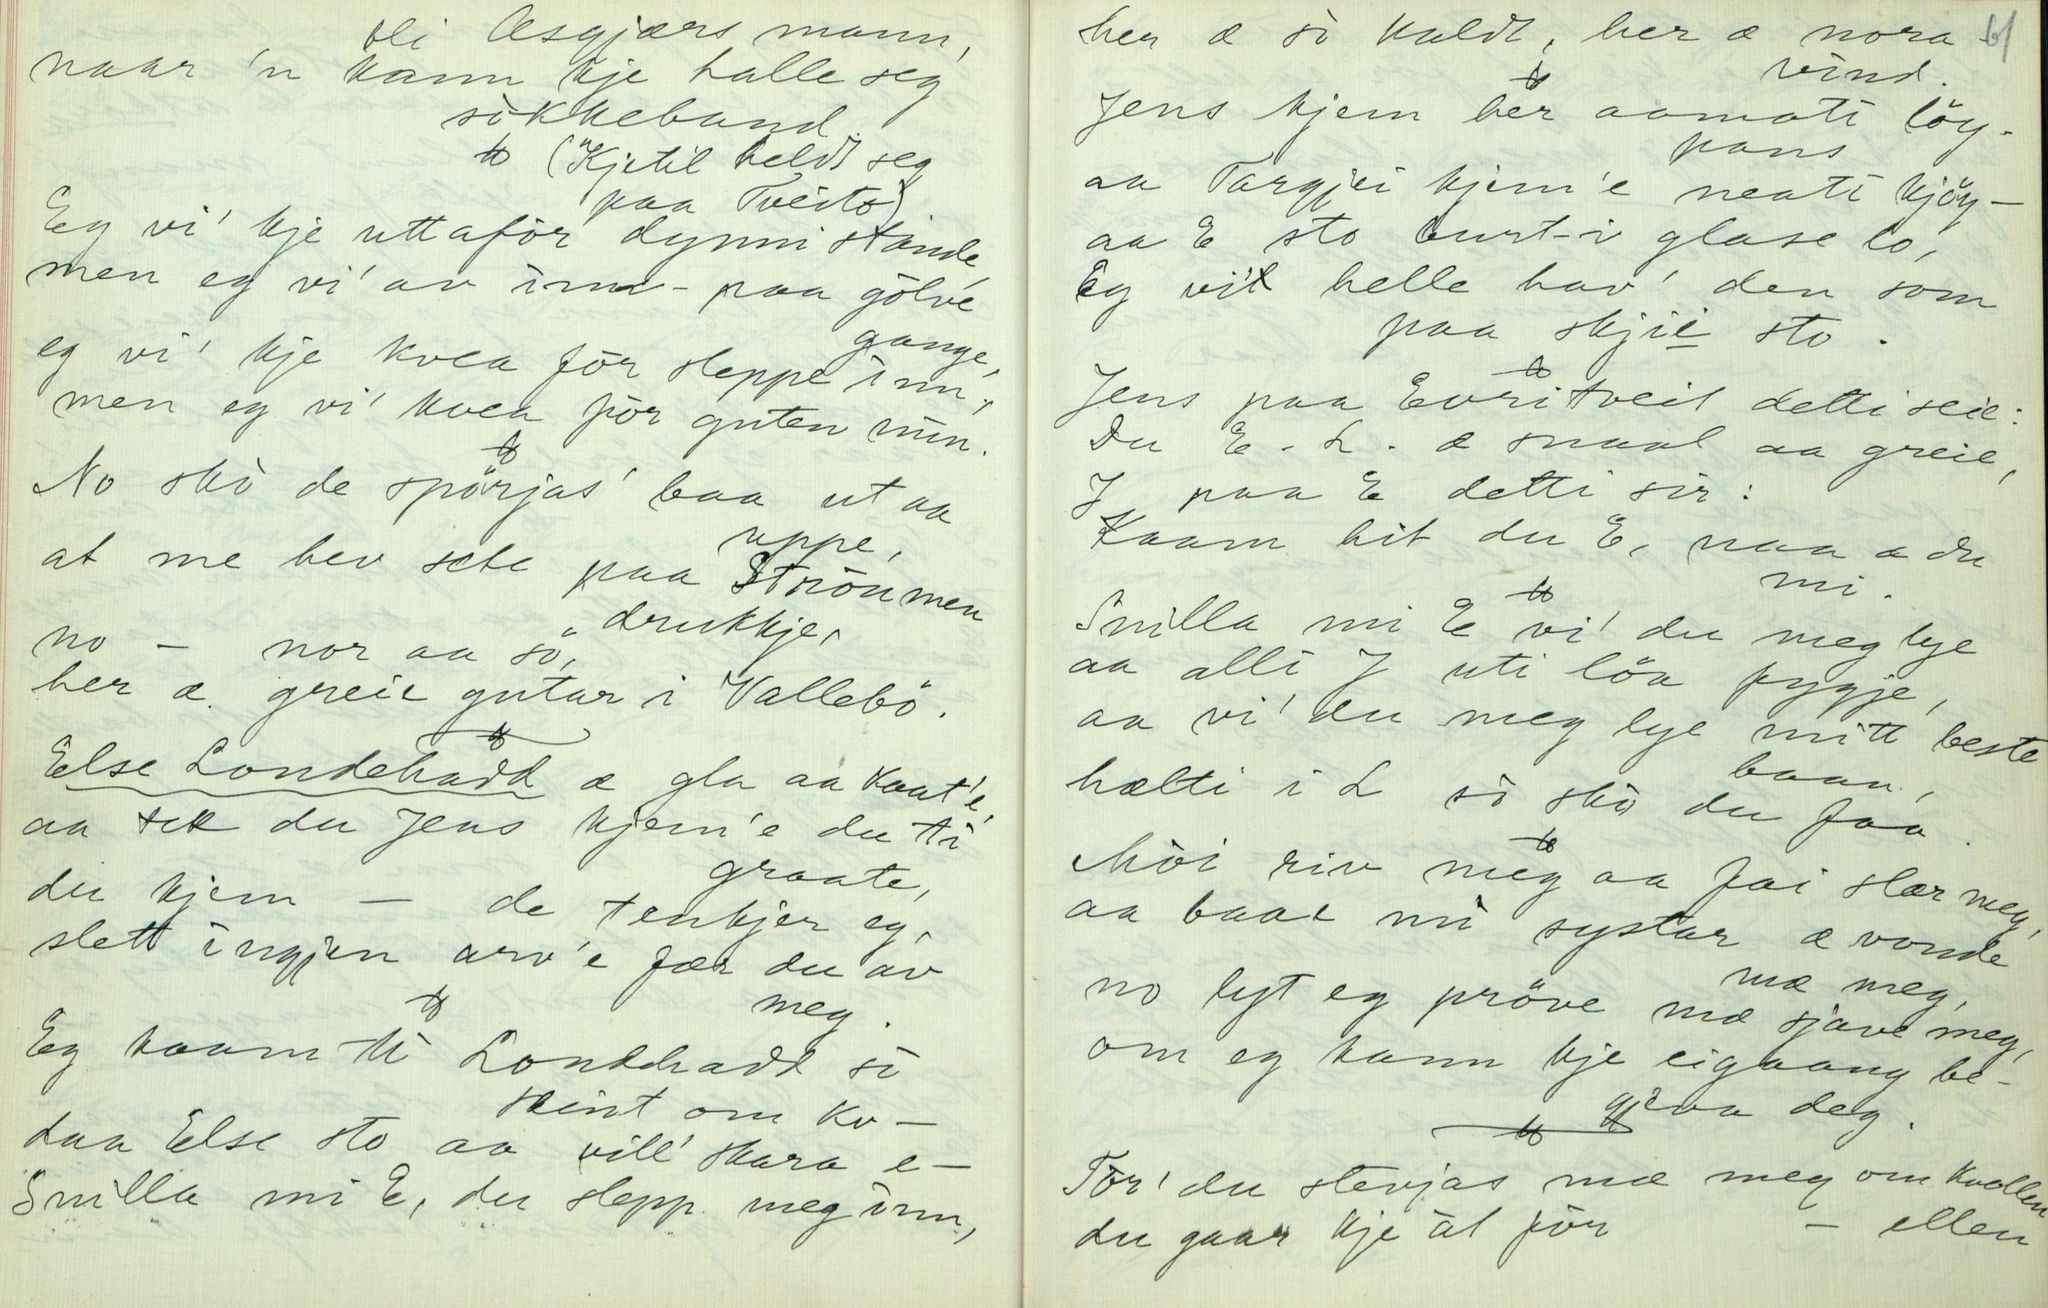 bli Asgjærs mann,
naar 'n kann kje halle seg
sokkeband.
("Kjetil heldt seg
paa Tveito)
Eg vi' kje uttafor dynni stande,
men eg vi' av inn - paa golve
gange,
eg vi' kje kvea for sleppe inn,
men eg vi' kvea for guten min.
No sko de spörjas' baa ut aa
uppe,
at me hev sete paa Ströumen
drukkje,
no — nor aa sö,
her æ greie gutar i Vallebö.
Else Londehadd æ gla aa kaat'e,
aa du Jens kjem'e du ti
graate,
du kjem — de tenkjer eg,
slett ingjen arv'e fær du av
meg.
Eg kaam ti Londehadd so
seint om kv—
daa Else sto aa vill' skara e—
Snilla mi E, du slepp meg inn,
61
her æ so kaldt, her æ nora
vind.
Jens kjem her aamoti löy-
pans
aa Targjei kjem'e neati kjöy—
aa E sto burt-i glase lo,
Eg vil helle hav' den som
paa skjie sto.
Jens paa Evritveit detti seie:
Du E. L. æ snaal aa greie,
J paa E detti sir:
Kaam hit du E, naa æ du
mi.
Snilla mi E vi' du meg lye
aa alli J uti löa fygje,
aa vi' du meg lye mitt beste
baan,
hælti i L so sko du faa.
Moi riv meg aa fai slær meg,
aa baae mi systar æ vonde
mæ meg,
no lyt eg pröve mæ sjave meg,
om eg kann kje eigaang be-
gjeva deg.
Tor' du stevjas mæ meg om kvellen
du gaar kje at for — ellen